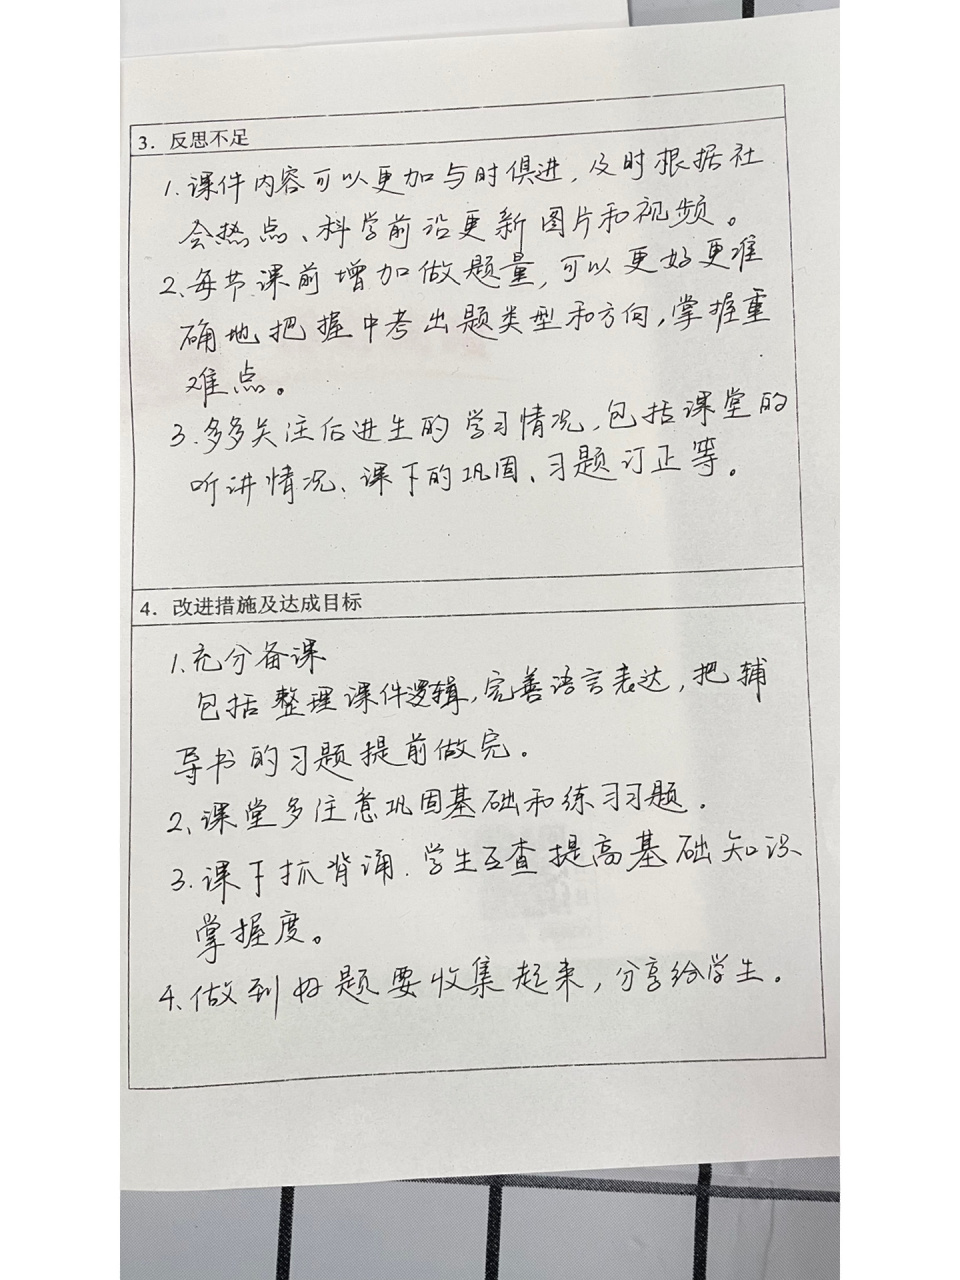 3. 反思不足
1.课件内容可以更加与时俱进,及时根据社
会热点、科学前沿更新图片和视频。
2、每节课前增加做题量,可以更好更准
确地把握中考出题类型和方向,掌握重
难点。
3.多多关注后进生的学习情况,包括课堂的
听讲情况、课下的巩固、习题订正等。
4. 改进措施及达成目标
1.充分备课
包括整理课件逻辑,完善语言表达,把辅
导书的习题提前做完。
2、课堂多注意巩固基础和练习习题.
3.课下抓背诵.学生互查提高基础知识
掌握度。
4.做到好题要收集起来,分享给学生。